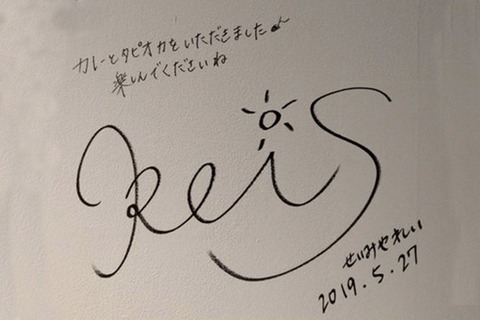 カレーとタピオカをいただきました♪
楽しんでくださいね
ReiS
せいみやれい
2019.5.27